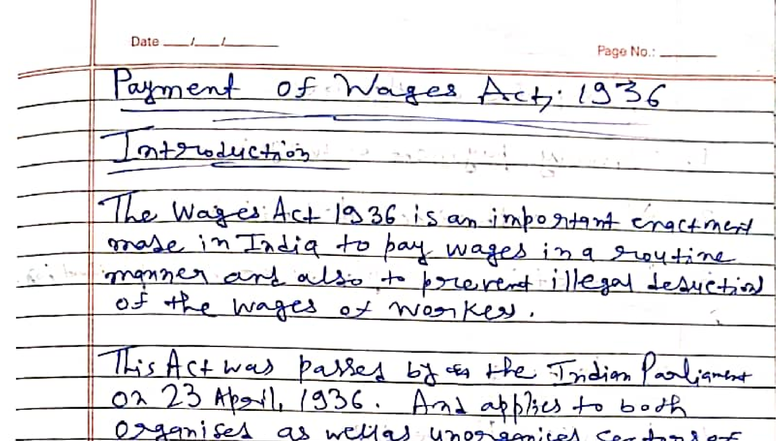 Date __/__/____
Page No.: ____
Payment of Wages Act, 1936
Introduction
The Wages Act 1936 is an important enactment
made in India to pay wages in a routine
manner and also to prevent illegal deduction
of the wages of worker.
This Act was passed by the Indian Parliament
on 23 April, 1936. And applies to both
organised as well as unorganised sectors of